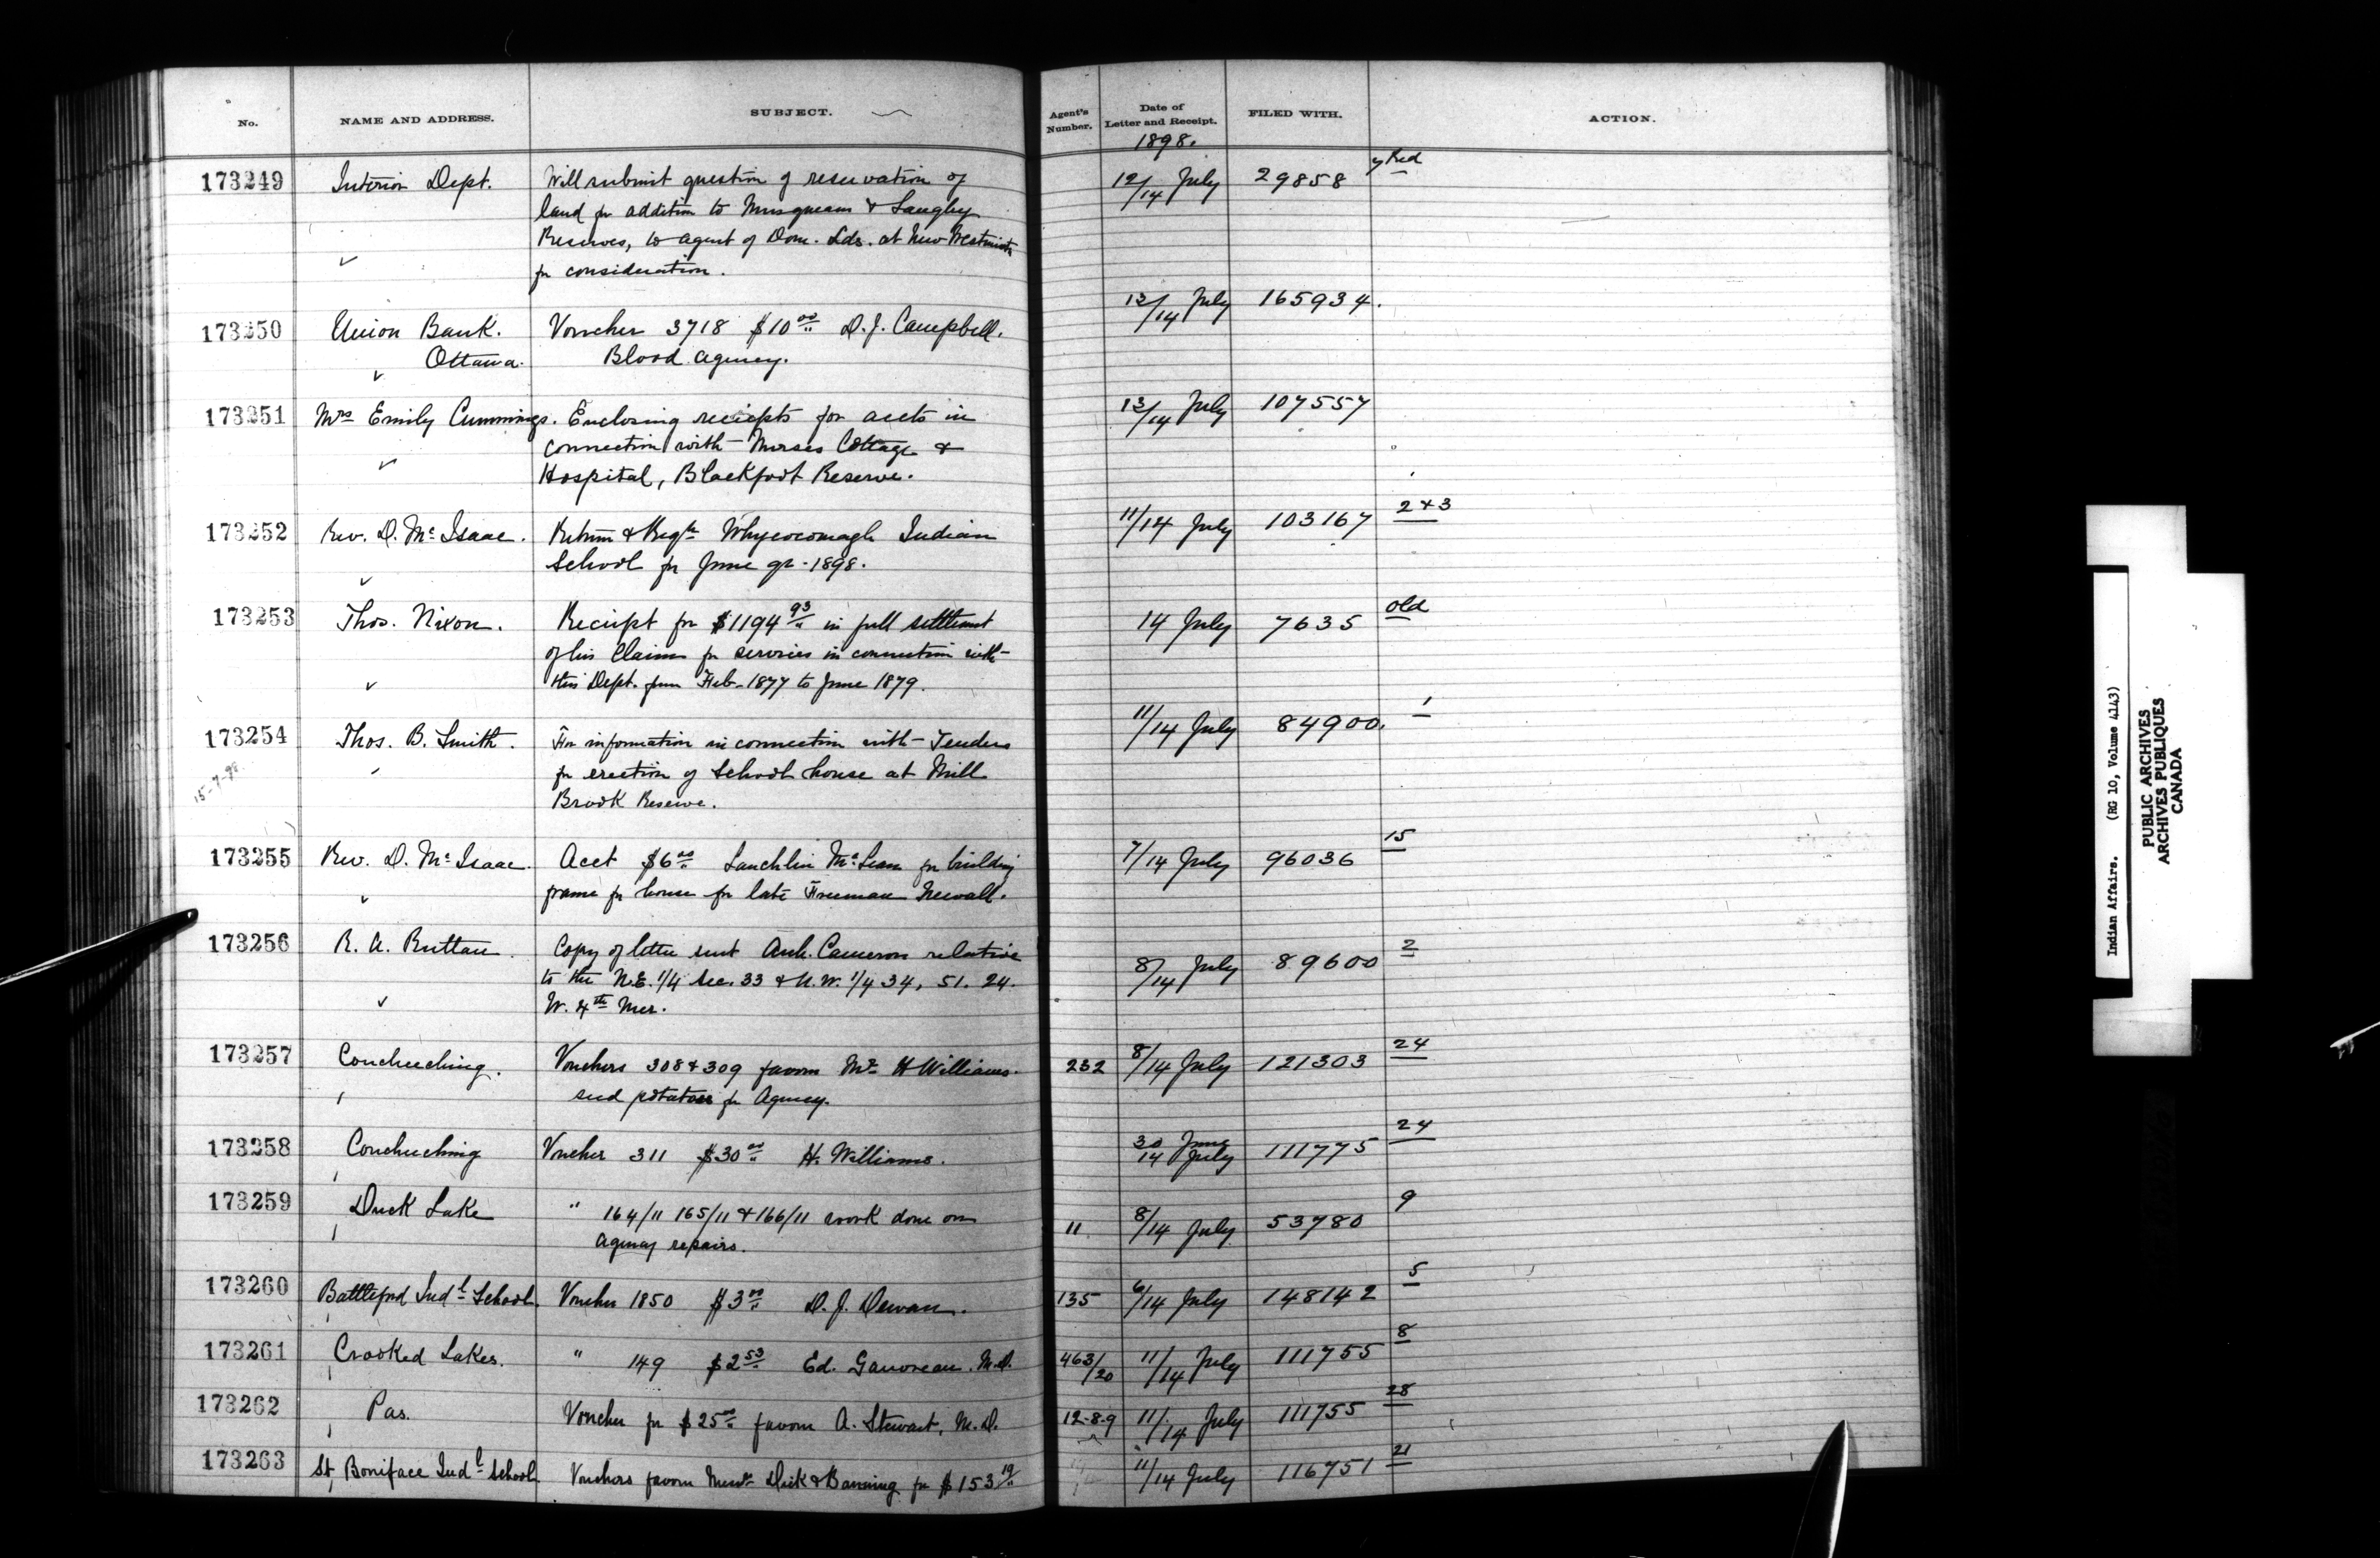 No. NAME AND ADDRESS. SUBJECT. Agent's Number. Date of Letter and Receipt. FILED WITH. ACTION.
1898.
173249 Interior Dept. Will submit question of reservation of 12/14 July 29858 Red
land for addition to Musqueam & Langley
Reserves, to agent of Dom. Lds. at New Westminster
for consideration.
173250 Union Bank. Voucher 3718 $10 00/" D. J. Campbell. 13/14 July 165934.
Ottawa. Blood Agency.
173251 Mrs Emily Cummings. Enclosing reciepts for accts in 13/14 July 107557
connection with Nurses Cottage &
Hospital, Blackfoot Reserve.
173252 Rev. D. McIsaac. Return & Regtr Whycocomagh Indian 11/14 July 103167 2 & 3
School for June qr - 1898.
173253 Thos. Nixon. Reciept for $1194 93/" in full settlement 14 July 7635 old
of his Claim for services in connection with
this Dept. from Feb - 1877 to June 1879.
173254 Thos. B. Smith. For information in connection with Tenders 11/14 July 84900. 1
15-7-98. for erection of School house at Mill
Brook Reserve.
173255 Rev. D. McIsaac. Acct $6 00/" Lauchlin McLean for building 7/14 July 96036 15
frame for house for late Freeman Newall.
173256 R. A. Ruttan. Copy of letter sent Arch. Cameron relative 8/14 July 89600 2
to the N.E. 1/4 Sec. 33 & N.W. 1/4 34, 51. 24.
W. 4th Mer.
173257 Coucheeching. Vouchers 308 & 309 favour Mr H Williams. 232 8/14 July 121303 24
seed potatoes for Agency.
173258 Coucheeching Voucher 311 $30 00/" H. Williams. 30 June 14 July 111775 24
173259 Duck Lake " 164/11 165/11 & 166/11 work done on 11 8/14 July 53780 9
agency repairs.
173260 Battleford Indl School. Voucher 1850 $3 00/" D. J. Dewan. 135 6/14 July 148142 5
173261 Crooked Lakes. " 149 $2 53/" Ed. Gauvreau. M.D. 463/20 11/14 July 111755 8
173262 Pas. Voucher for $25 00/" favour A. Stewart, M.D. 12-8-9 11/14 July 111755 28
173263 St Boniface Indl School. Vouchers favour Messrs Dick & Banning for $153 19/" 11/14 July 116751 21
Indian Affairs. (RG 10, Volume 4143)
PUBLIC ARCHIVES
ARCHIVES PUBLIQUES
CANADA